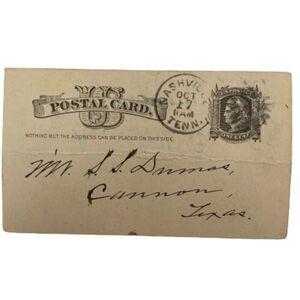 US
POSTAL CARD.
NASHVILLE
OCT
17
6AM
TENN.
NOTHING BUT THE ADDRESS CAN BE PLACED ON THIS SIDE.
ONE CENT
Mr. S. S. Dumas,
Cannon,
Texas.